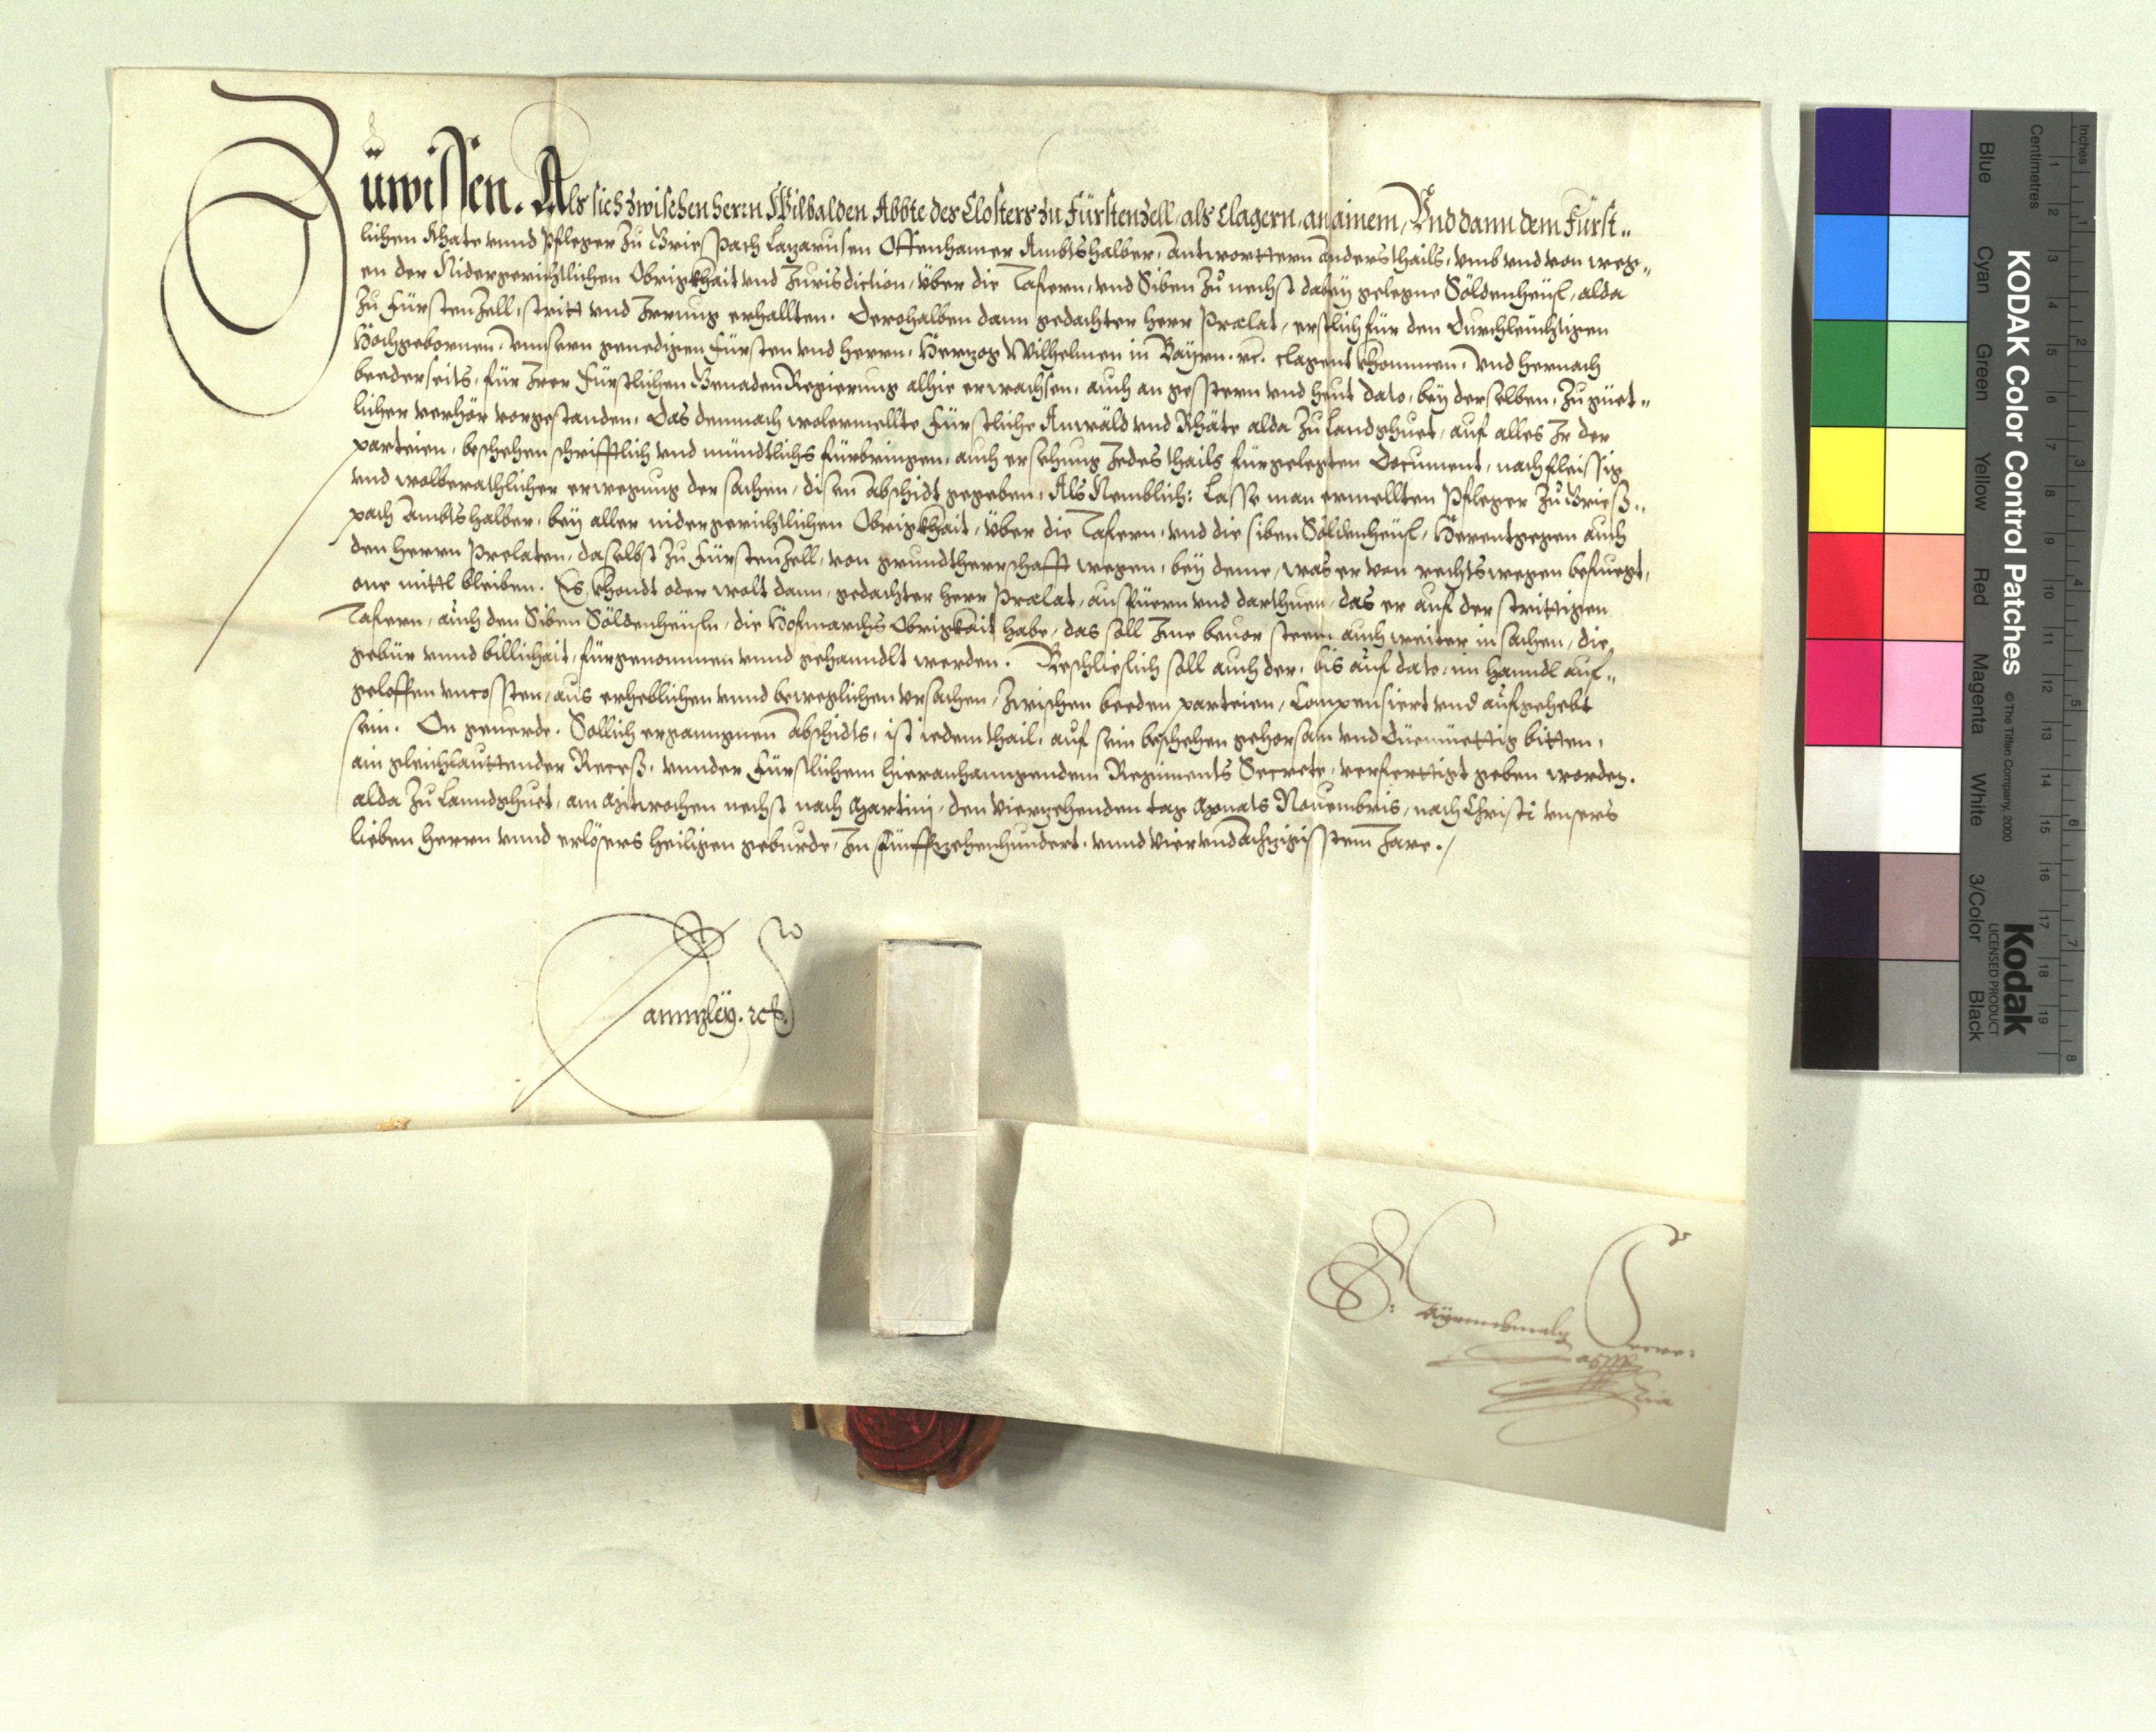 Zuwissen. Als sich zwischen herrn Wilbalden Abbte des Closters zu Fürstenzell, als Clagern, an ainem, Vnd dann dem Fürst„
lichen Rhate vnnd Pfleger Zu Griespach Lazarusen Offenhamer Ambtshalber, Antworttern anders thails, vmb vnd von weg„
en der Nidergerichtlichen Obrigkhait vnd Jurisdiction, über die Tafern, vnd Siben Zu nechst dabey gelegne Söldenheusl, alda
Zu Fürstenzell, stritt vnd Irrung erhallten. Derohalben dann gedachter herr Prælat, erstlich für den Durchleuchtigen
Hochgebornen, Vnnsern genedigen Fürsten vnd herrn, Hertzog Wilhelmen in Bayrn. rc. clagent khommen, vnd hernach
beederseits, für Irer Fürstlichen Genaden Regierung alhie erwachsen, auch an gestern vnd heut dato, bey derselben, Zu güet„
licher verhör vorgestanden, Das demnach wolermellte Fürstliche Anwäld vnd Rhäte alda Zu Landshuet, auf alles Ir der
parteien, beschehen schrifftlich vnd mündtlichs fürbringen, auch ersehung Jedes thails fürgelegten Document, nach fleissig
vnd wolberathlicher erwegung der sachen, disen Abschidt gegeben, Als Nemblich: Lasse man ermellten Pfleger Zu Grieß„
pach Ambtshalber, bey aller nidergerichtlichen Obrigkhait, über die Tafern, vnd die siben Söldenheusl, Herentgegen auch
den herrn Prelaten, daselbst Zu Fürstenzell, von grundtherrschafft wegen, bey deme, was er von rechtswegen befuegt,
one mittl bleiben. Es khondt oder wolt dann, gedachter herr Prælat, ausfüern vnd darthuen, das er auf der strittigen
Tafern, auch den Siben Söldenheusln, die Hofmarchs Obrigkait habe, das soll Ime beuor steen auch weiter in sachen, die
gebür vnnd billichait, fürgenommen vnnd gehanndlt werden. Beschlieslich soll auch der, bis auf dato, im hanndl auf„
geloffen vncossten, aus erheblichen vnnd beweglichen vrsachen, Zwischen beeden parteien, Compensiert vnd aufgehebt
sein. On geuerde. Sollich erganngnen Abschidts, ist iedem thail, auf sein beschehen gehorsam vnd Düemüettig bitten,
ain gleichlauttender Receß, vnnder Fürstlichem hieranhanngendem Regiments Secrete, verfertigt geben worden.
alda Zu Lanndshuet, am Mitwochen nechst nach Martinj, den Vierzehenden tag Monats Nouembris, nach Christi vnsers
lieben herrn vnnd erlösers heiligen geburde, Im Fünffzehenhundert, vnnd Vierundachzigisstem Jare./
Canntzley. rc
KODAK Color Control Patches
© The Tiffen Company, 2000
Kodak
LICENSED PRODUCT
Inches 1 2 3 4 5 6 7 8
Centimetres 1 2 3 4 5 6 7 8 9 10 11 12 13 14 15 16 17 18 19
Blue Cyan Green Yellow Red Magenta White 3/Color Black